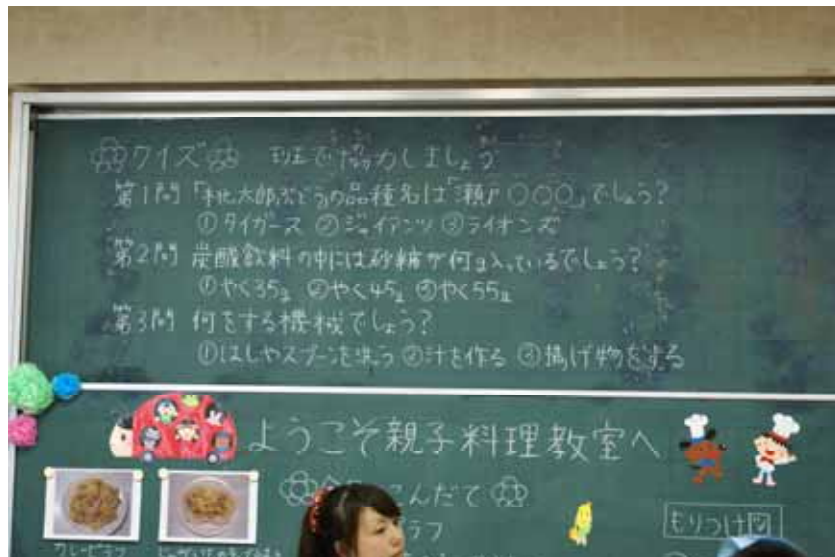 クイズ 班で協力しましょう
第1問 「桃太郎ぶどう」の品種名は「瀬戸○○○」でしょう?
①タイガース ②ジャイアンツ ③ライオンズ
第2問 炭酸飲料の中には砂糖が何g入っているでしょう?
①やく35g ②やく45g ③やく55g
第3問 何をする機械でしょう?
①はしやスプーンを洗う ②汁を作る ③揚げ物をする
ようこそ親子料理教室へ
こんだて
ラフ
もりつけ図
カレーピラフ